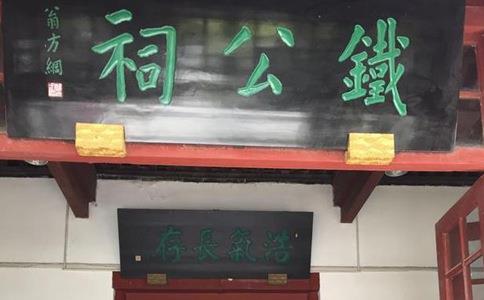 鐵公祠
翁方綱
浩氣長存